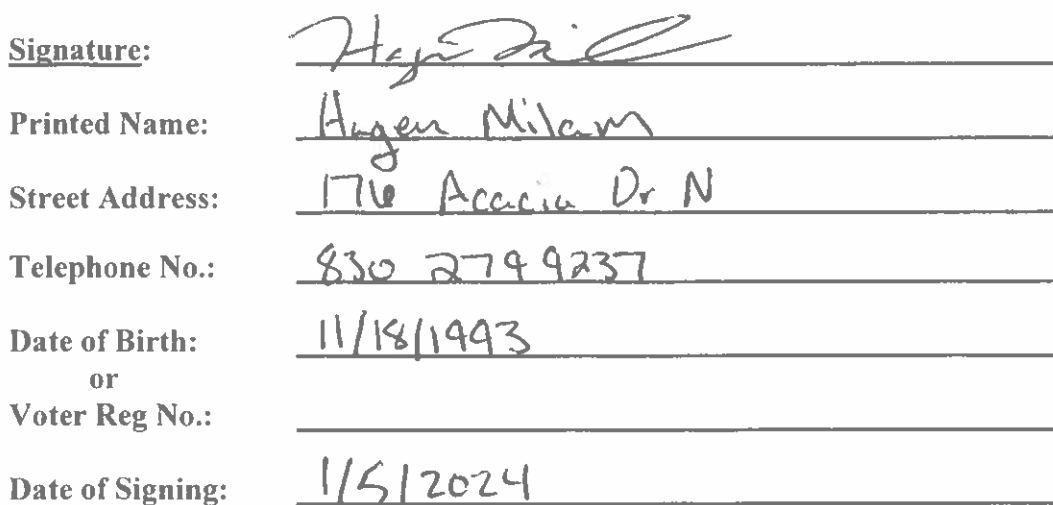 Signature:
Printed Name: Hagen Milam
Street Address: 176 Acacia Dr N
Telephone No.: 830 279 9237
Date of Birth: 11/18/1993
or
Voter Reg No.:
Date of Signing: 1/5/2024